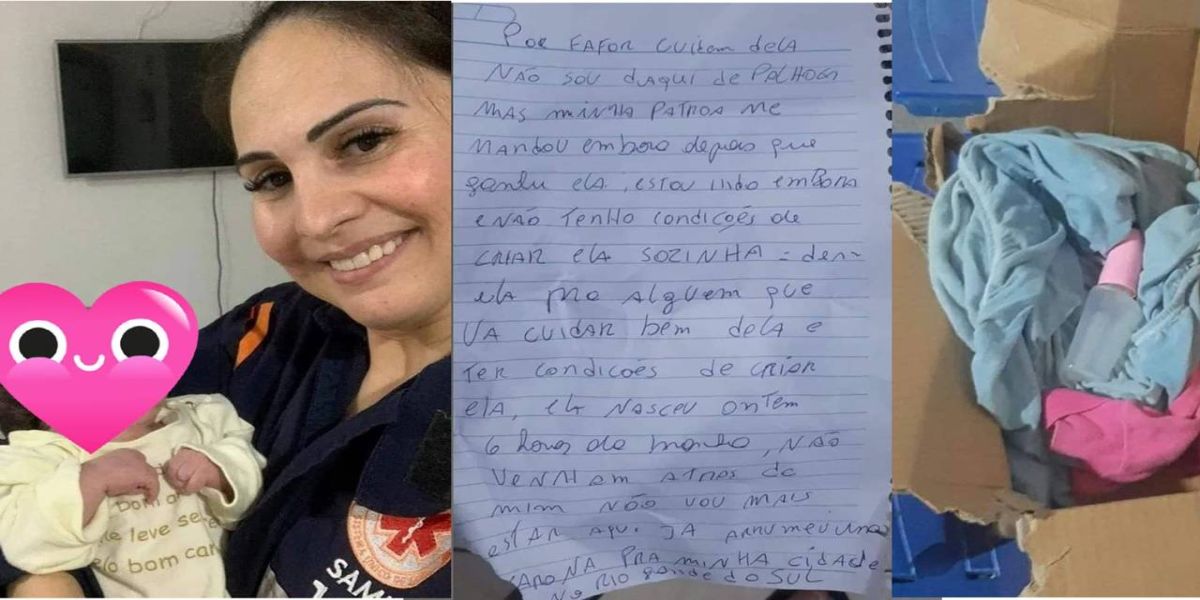 DOM a
le leve se
elo bom car
SAM
Por FAFOR Cuidem dela
NÃO sou daqui de PALHOÇA
MAS minha PATROA me
MANDOU embora depois que
ganhu ela, estou indo embora
e NÃO TENHO condições de
CRIAR ela SOZINHA
ela pra alguem que
VA CUIDAR bem dela e
TER condicões de criar
ela, ela NASCEU ontem
6 horas da manha, NÃO
VENHAM ATRAS de
mim NÃO vou mais
estar aqui. JA arrumei uma
carona PRA minha cidade
No Rio grande do SUL